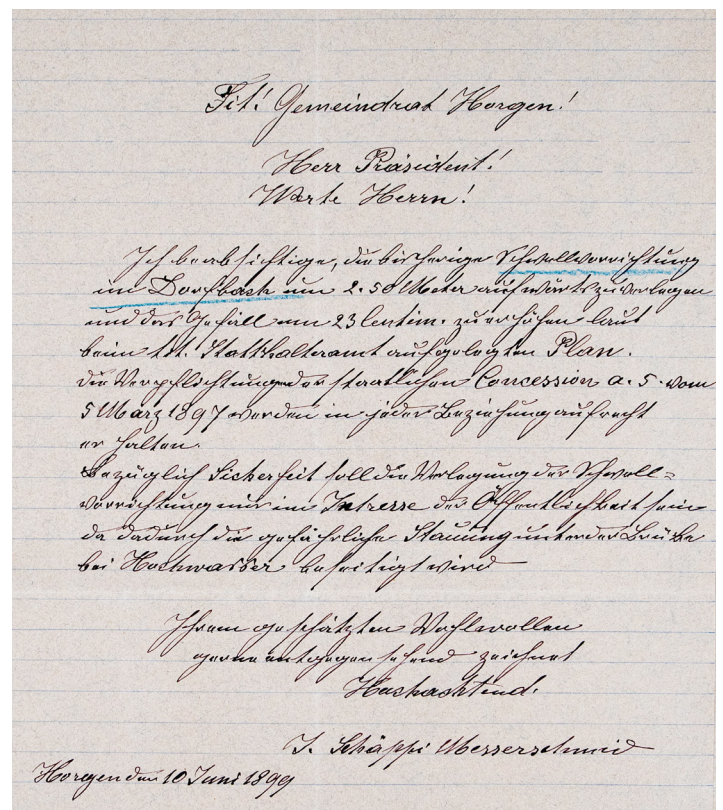 Tit! Gemeindrat Horgen!
Herr Präsident!
Werte Herrn!
Ich beabsichtige, die bisherige Schwellvorrichtung
im Dorfbach um 2.50 Meter aufwärts zu verlegen
und das Gefäll um 23 Centim. zu erhöhen laut
beim tit. Statthalteramt aufgelegten Plan.
Die Verpflichtungen der staatlichen Concession a. 5. vom
5 März 1897 werden in jeder Beziehung aufrecht
erhalten.
Bezüglich Sicherheit soll die Verlegung der Schwell=
vorrichtung nur im Intresse der Öffentlichkeit sein
da dadurch die gefährliche Stauung unter der Brücke
bei Hochwasser beseitigt wird
Ihrem geschätzten Wohlwollen
gerne entgegen sehend zeichnet
Hochachtend.
J. Schäppi Messerschmid
Horgen den 10 Juni 1899